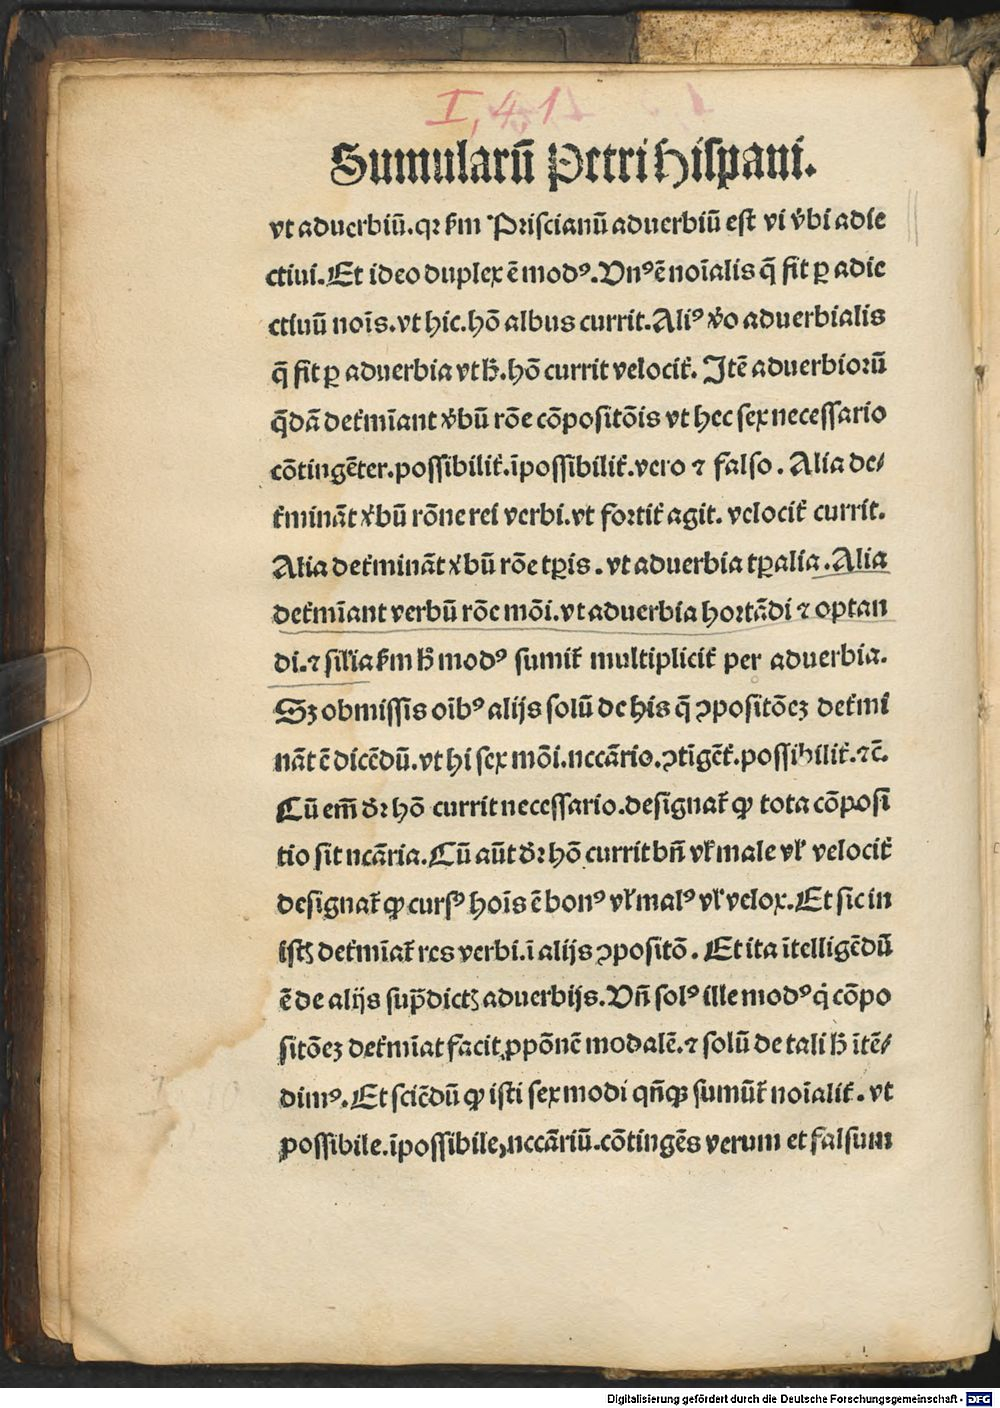 I, 41
Sumularū Petri Hispani.
vt aduerbiū. qꝛ ẜm Priscianū aduerbiū est vi v̓bi adie
ctiui. Et ideo duplex ē modꝰ. Vnꝰ ē noīalis q̄ fit ꝑ adie
ctiuū noīs. vt hic. hō albus currit. Aliꝰ v̓o aduerbialis
q̄ fit ꝑ aduerbia vt h̄. hō currit velocit᷑. Itē aduerbioꝛū
q̄dā det᷑mīant v̓bū rōe cōpositōis vt hec sex necessario
cōtingēter. possibilit᷑. īpossibilit᷑. vero ⁊ falso. Alia de⸗
t᷑mināt v̓bū rōne rei verbi. vt foꝛtit᷑ agit. velocit᷑ currit.
Alia det᷑mināt v̓bū rōe tꝑis. vt aduerbia tꝑalia. Alia
det᷑mīant verbū rōe mōi. vt aduerbia hoꝛtādi ⁊ optan
di. ⁊ silīa ẜm h̄ modꝰ sumit᷑ multiplicit᷑ per aduerbia.
Sꝫ obmissis oībꝰ alijs solū de his q̄ ꝯpositōeꝫ det᷑mi
nāt ē dicēdū. vt hi sex mōi. nccārio. ꝯtīgēt᷑. possibilit᷑. ⁊c̄.
Cū em̄ dꝛ̄ hō currit necessario. designat᷑ ꝙ tota cōposi
tio sit ncāria. Cū aūt dꝛ̄ hō currit bn̄ vl̓ male vl̓ velocit᷑
designat᷑ ꝙ cursꝰ hoīs ē bonꝰ vl̓ malꝰ vl̓ velox. Et sic in
istꝭ det᷑mīat᷑ res verbi. ī alijs ꝯpositō. Et ita ītelligēdū
ē de alijs sup̄dictꝭ aduerbijs. Vn̄ solꝰ ille modꝰ q̇ cōpo
sitōeꝫ det᷑mīat facit ꝓpōnē modalē. ⁊ solū de tali h̄ ītē⸗
dimꝰ. Et sciēdū ꝙ isti sex modi qn̄qꝫ sumūt᷑ noīalit᷑. vt
possibile. īpossibile, nccāriū. cōtingēs verum et falsum
Digitalisierung gefördert durch die Deutsche Forschungsgemeinschaft - DFG